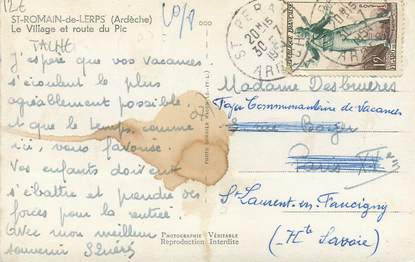 ST-ROMAIN-de-LERPS (Ardèche)
Le Village et route du Pic
J'espère que vos vacances
s'écoulent le plus
agréablement possible
et que le temps comme
ici vous favorise.
Vos enfants doivent
s'ébattre et prendre des
forces pour la rentrée.
Avec mon meilleur
souvenir
PHOTO
A VÉRITABLE
Reproduction Interdite
ST PERAY
20H15
30-7
ARDÈCHE
12F
Madame Desbruères
Foyer Communautaire de Vacances
Paris
St Laurent en Faucigny
(Hte Savoie)